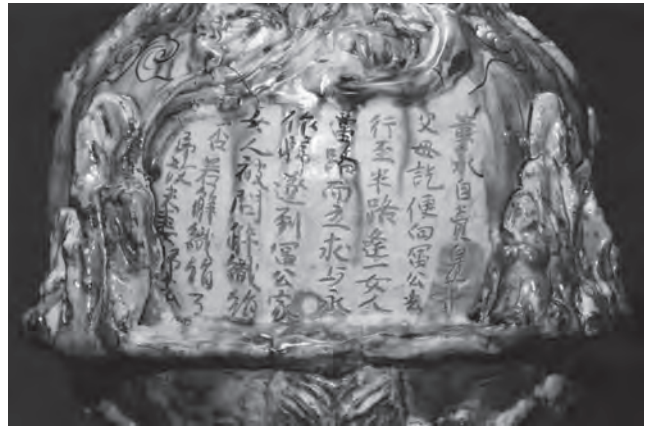 董永自賣身葬
父母訖便向富公去
行至半路逢一女人
當路而立求与永
作婦遂到富公家
女人被問解織絹
否若解織絹了
放夫妻歸去